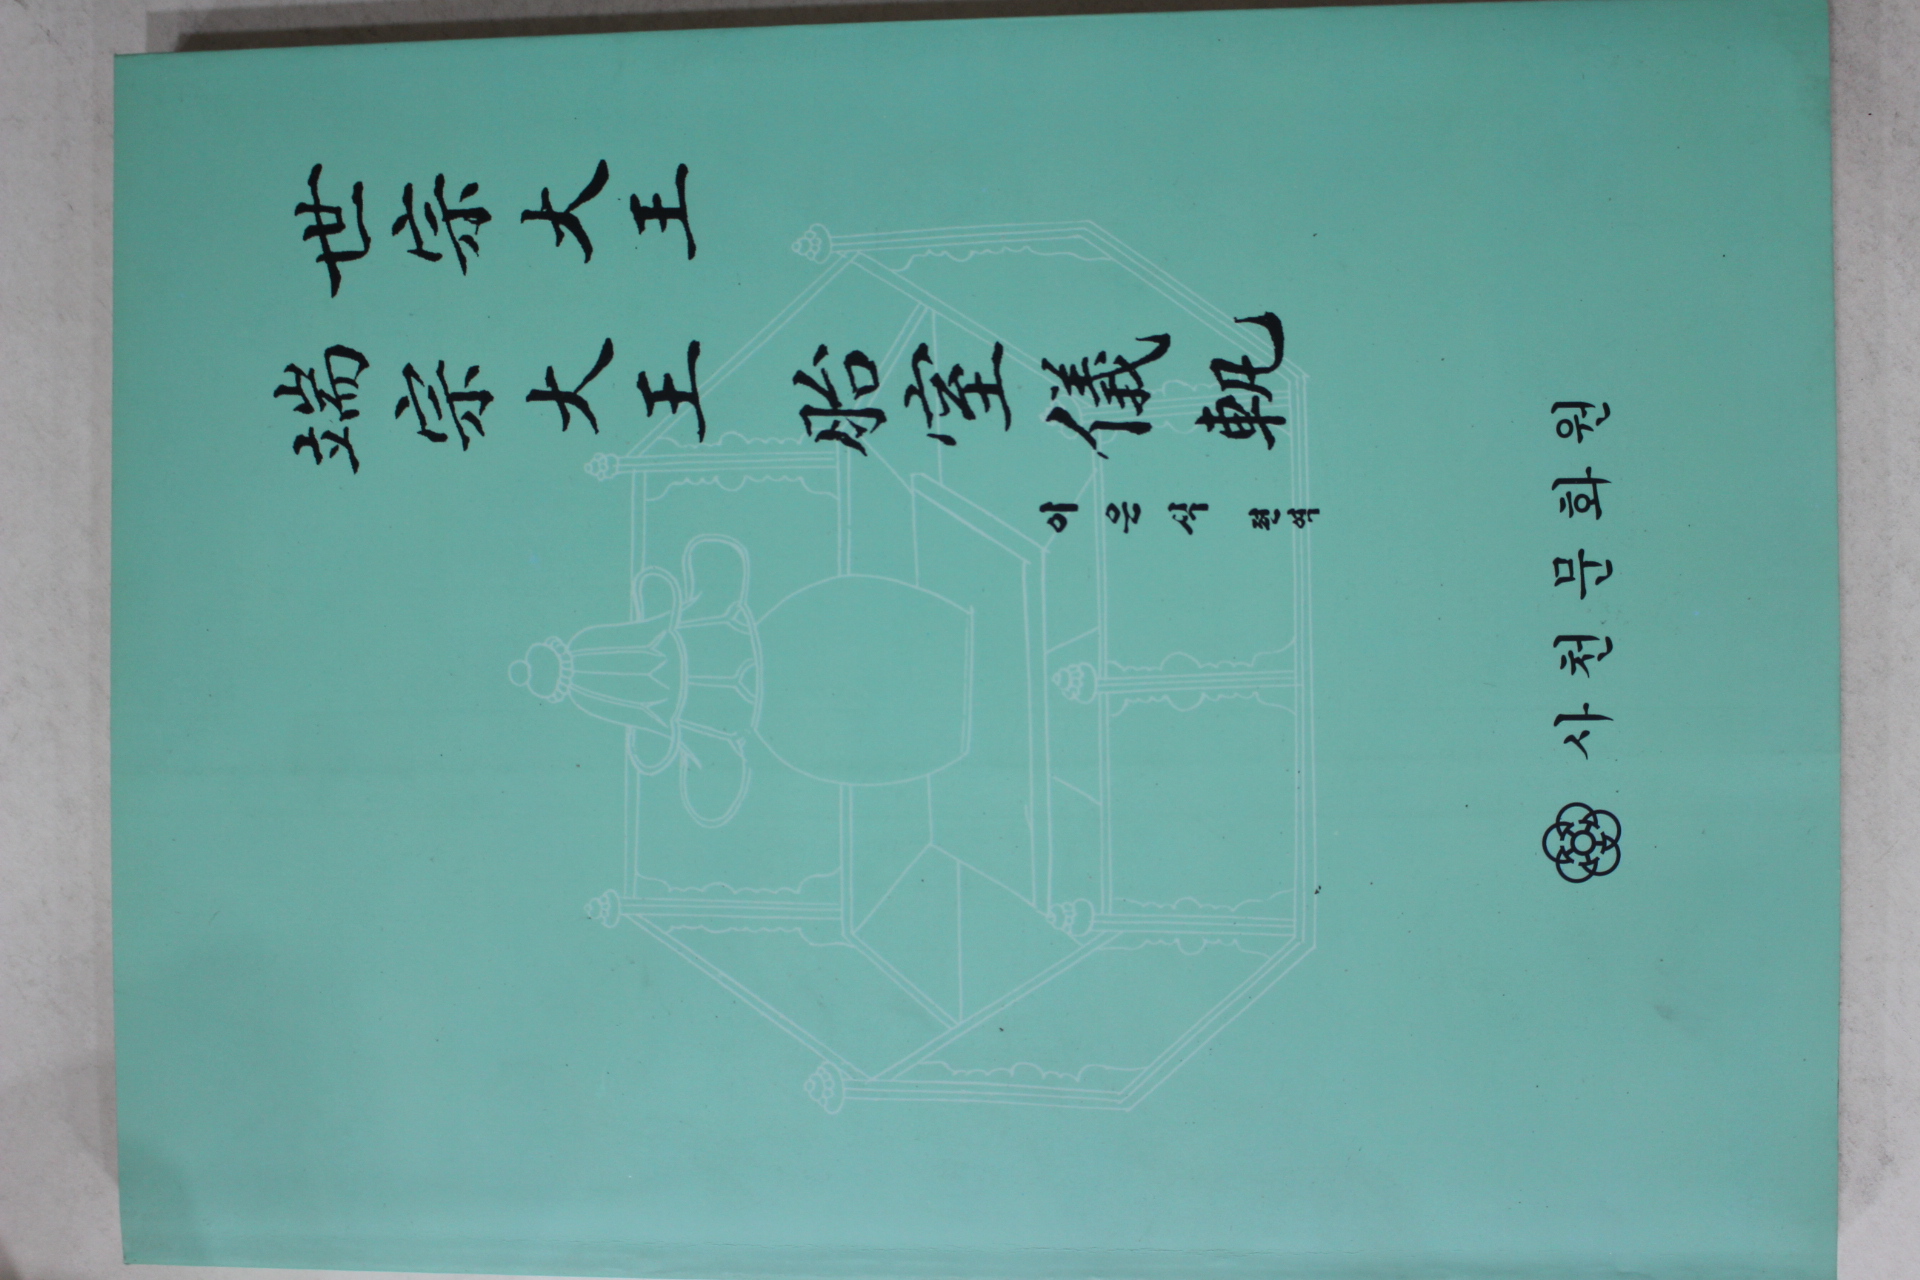 世宗大王
端宗大王 胎室儀軌
이은식 편역
사천문화원